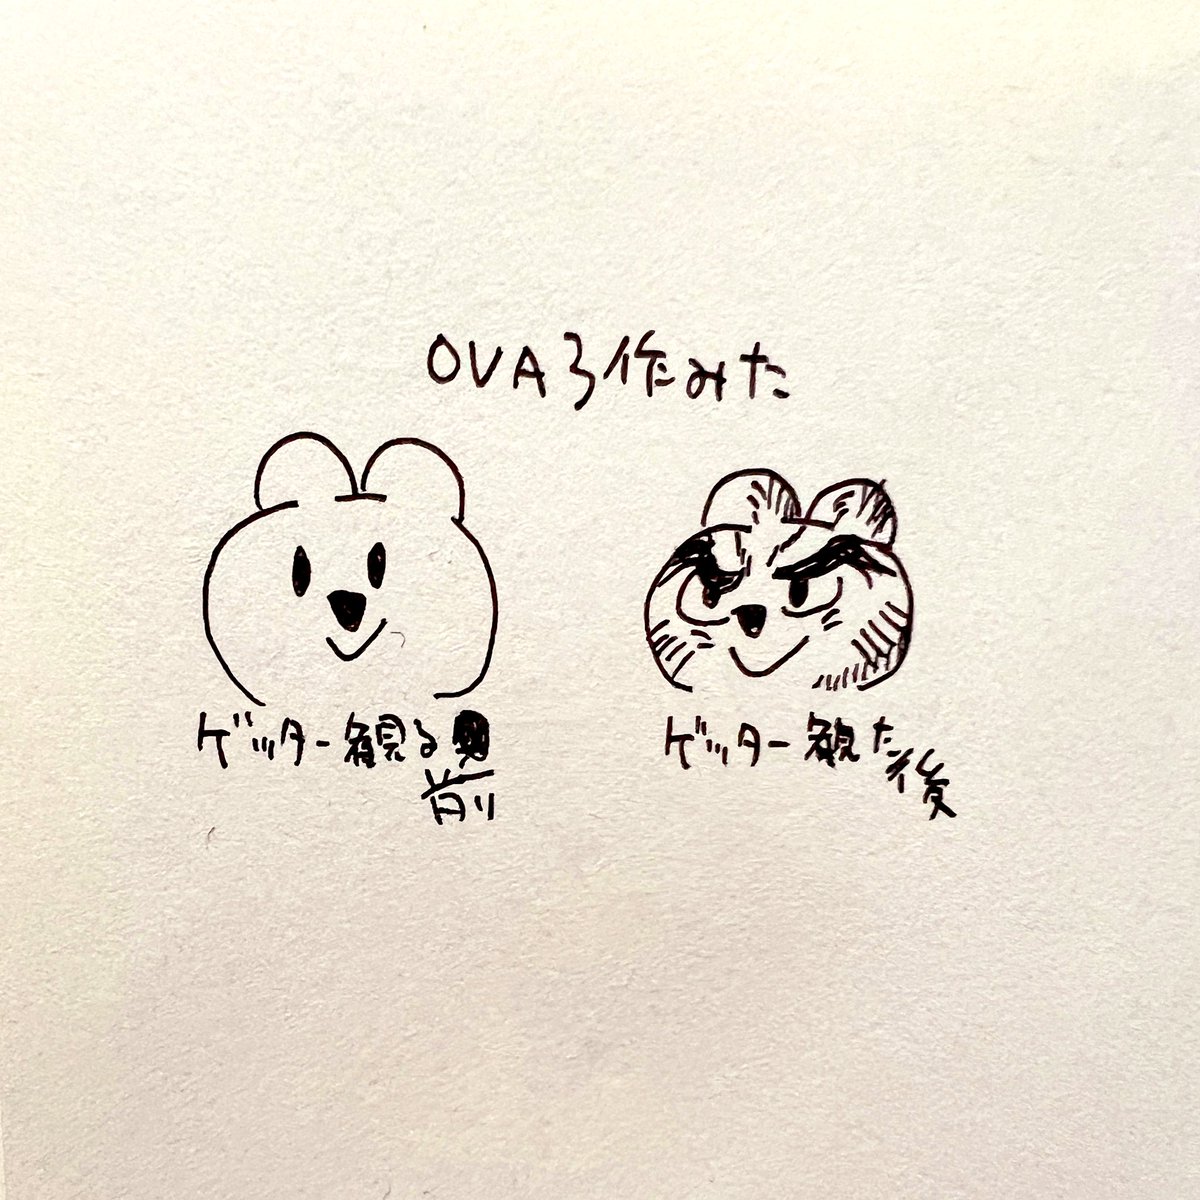 OVA3作みた
ゲッター観る前
ゲッター観た後